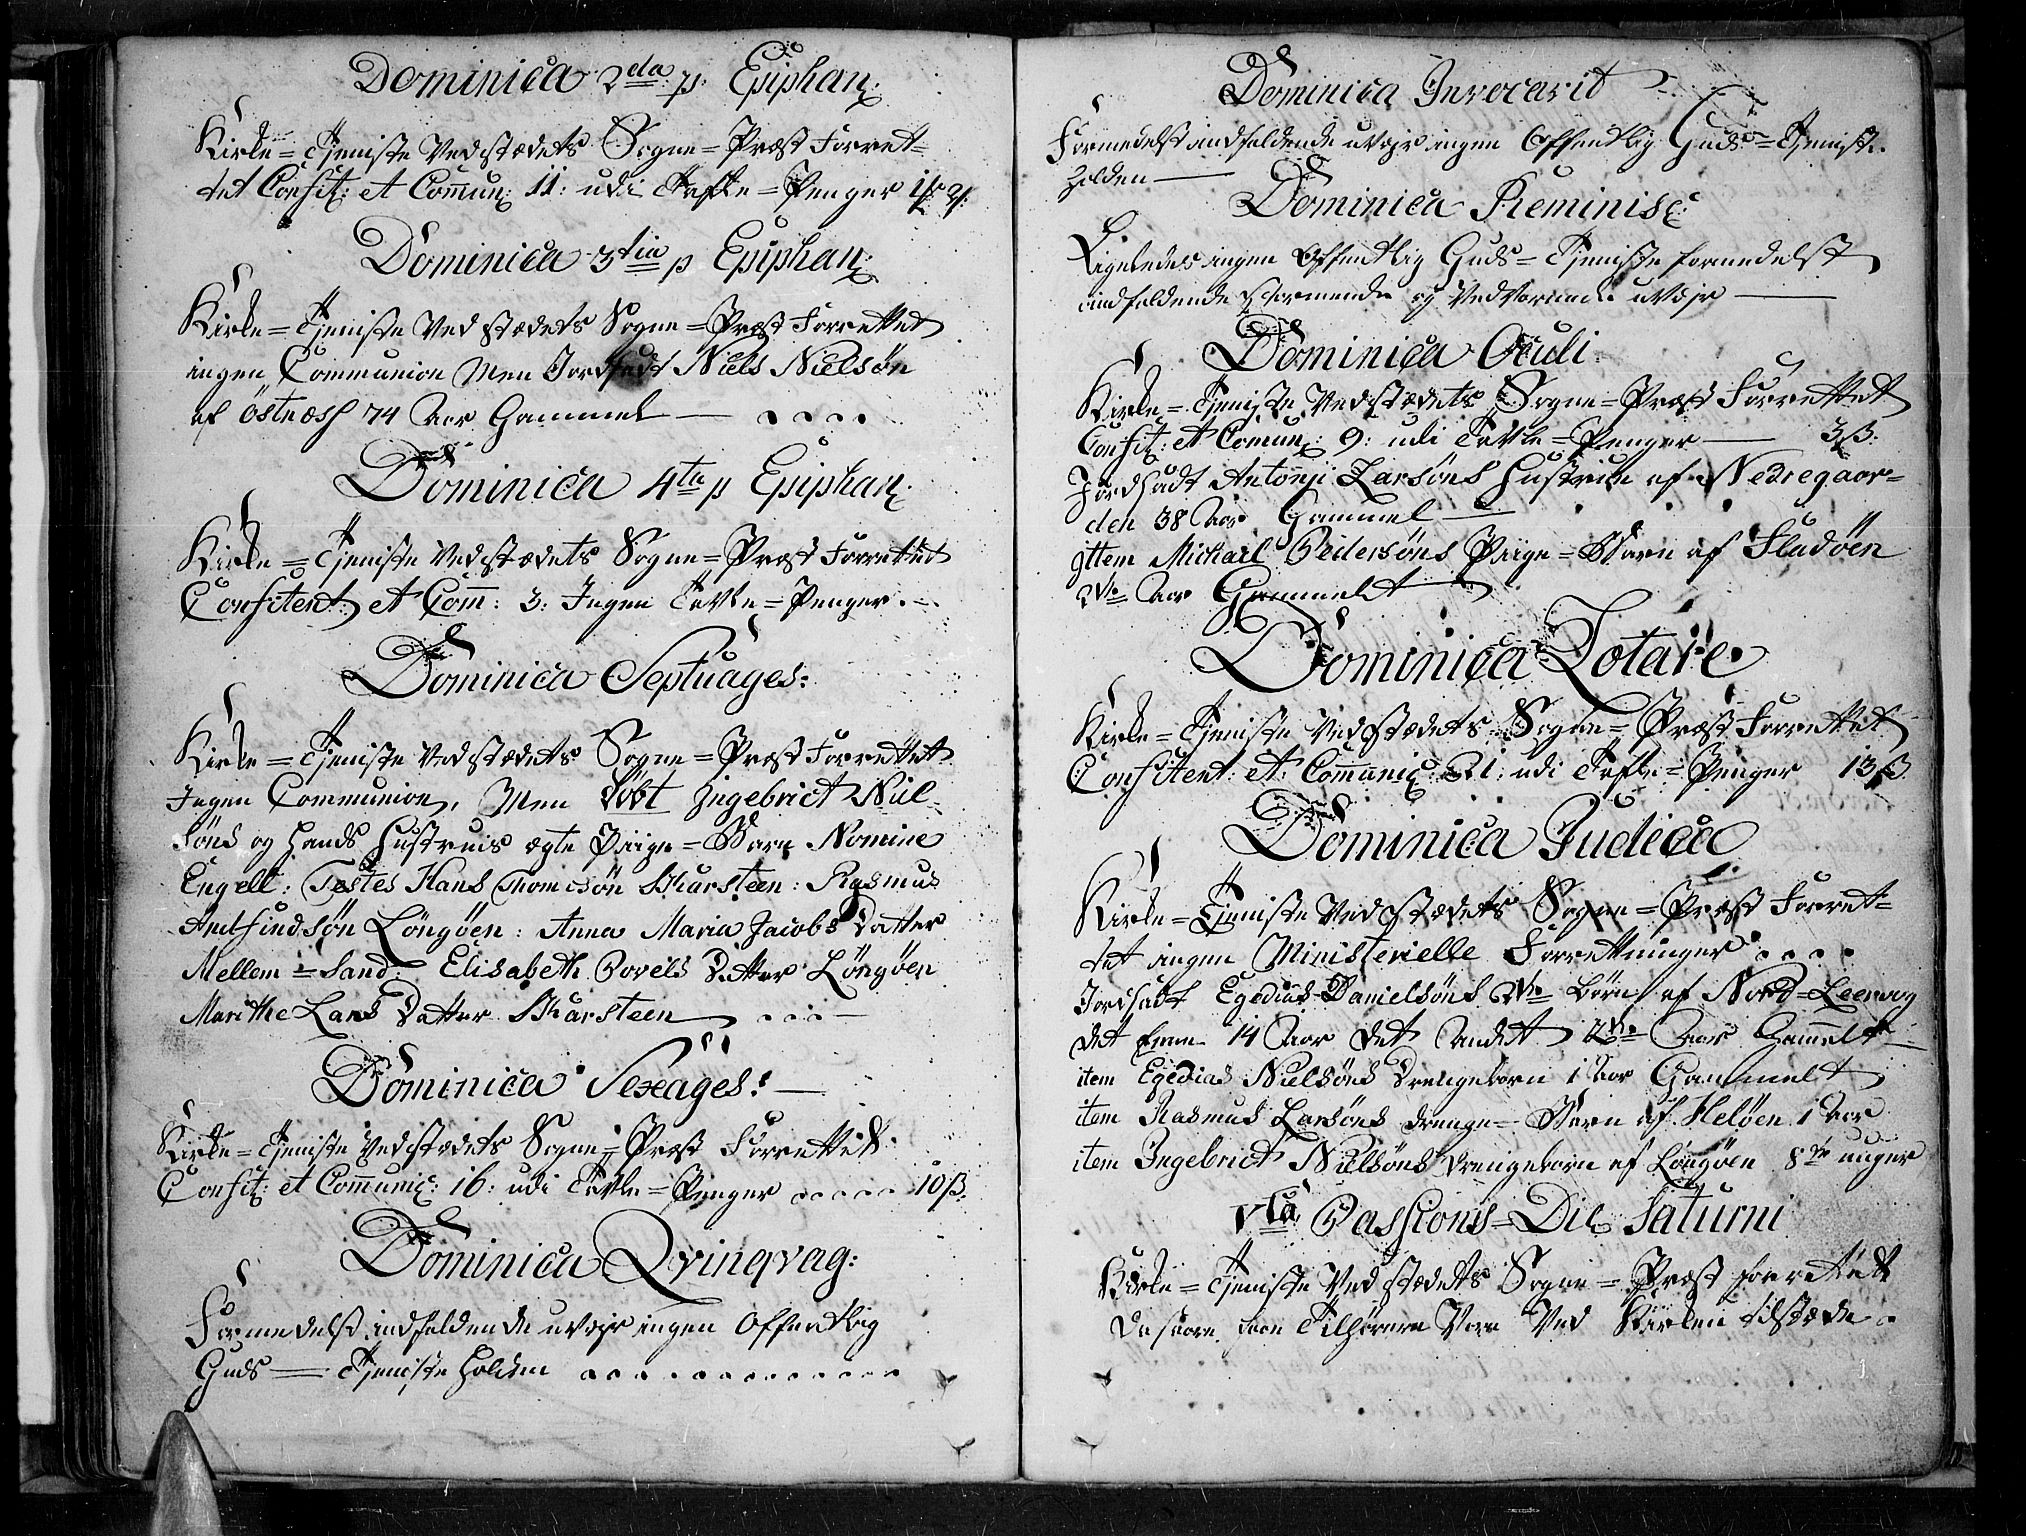 Dominica 2da p. Epiphan:
Kirke=Tjeniste Ved Stædets Sogne=Præst Forret=
tet Confit: et Com̄un: 11: udi Tafle=Penger
Dominica 3tia p Epiphan:
Kirke=Tjeniste Ved Stædets Sogne=Præst Forrettet
ingen Communion Men Jordsadt Niels Nielsøn
af Östnæss 74 Aar Gammel — . . . .
Dominica 4ta p Epiphan:
Kirke=Tjeniste Ved Stædets Sogne=Præst Forrettet
Confitent: et Com̄: 3: Ingen Tavle=Penger . —
Dominica Septuages:
Kirke=Tjeniste Ved Stædets Sogne=Præst Forrettet
Ingen Communion, Men Döbt Ingebrict Niel=
söns og Hands Hustrues ægte Piige=Barn Nomine
Engell: Testes Hans Thomesön Skarsteen: Rasmus
Arnfindsön Löngöen: Anna Maria Jacobs Datter
Mellem=Land: Elisabeth Povels Datter Löngöen
Marithe Lars Datter Skarsteen . . . —
Dominica Sexages: —
Kirke=Tjeniste Ved Stædets Sogne=Præst Forrettet.
Confit: et Com̄unic: 16: udi Tavle=Penger . . . . . 10 ß.
Dominica Qvinqvag:
Formedelst indfaldende uvejr ingen Offentlig
Guds — Tjeniste Holden . . . . . . . . . . . . .
Dominica Invocavit
Formedelst indfaldende uvejr ingen Offentlig Guds=Tjeniste
Holden —
Dominica Reminisc:
Ligeledes ingen Offentlig Guds=Tjeniste formedelst
indfaldende Stormende og Vedvarende uvejr —
Dominica Oculi
Kirke=Tjeniste Ved Stædets Sogne=Præst Forrettet
Confit: et Com̄un: 9: udi Tavle=Penger — 3 ß.
Jordsadt Antonji Larsöns Hustrue af Nedregaar=
den 38 Aar Gammel — . . . .
Ittem Michail Pedersöns Piige=Barn af Fladöen
2de Aar Gammelt —
Dominica Lætare
Kirke=Tjeniste Ved Stædets Sogne=Præst Forrettet
Confitent: et Com̄unic: 21: udi Tafle=Penger 13 ß
Dominica Judica
Kirke=Tjeniste Ved Stædets Sogne=Præst Forret=
tet ingen Ministerielle Forretninger . . . .
Jordsadt Egedius Danielsöns 2de Börn af Nord=Leervog
det Eene 14 Aar det Andet 2de Aar Gam̄elt —
item Egedias Nielsöns Drengebarn 1 Aar Gammelt
item Rasmus Larsöns Drenge=Barn af Helöen 1 Aar
item Ingebrict Nielsöns Drengebarn af Löngöen 8te uger
Vta Passionis=Die Saturni
Kirke=Tjeniste Ved Stædets Sogne=Præst forrettet
Da Tilhörere Vare Ved Kirken tilstæde .